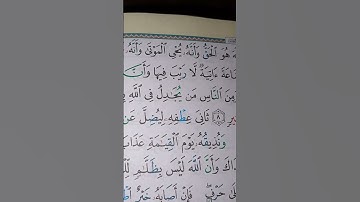 هُوَ ٱلْحَقُّ وَأَنَّهُۥ يُحْىِ ٱلْمَوْتَىٰ وَأَنَّهُۥ
ءَاتِيَةٌ لَّا رَيْبَ فِيهَا وَأَنَّ
ٱلنَّاسِ مَن يُجَٰدِلُ فِى ٱللَّهِ
٨ ثَانِىَ عِطْفِهِۦ لِيُضِلَّ عَن
وَنُذِيقُهُۥ يَوْمَ ٱلْقِيَٰمَةِ عَذَابَ
وَأَنَّ ٱللَّهَ لَيْسَ بِظَلَّٰمٍ
حَرْفٍ فَإِنْ أَصَابَهُۥ خَيْرٌ